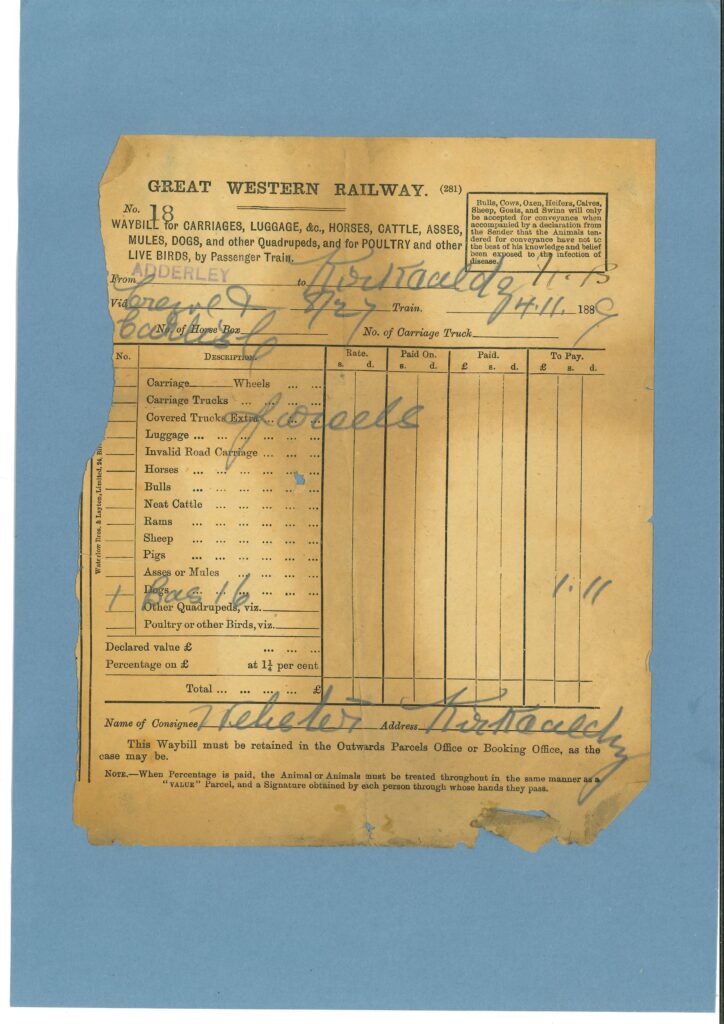 GREAT WESTERN RAILWAY. (281)
No. 18
WAYBILL for CARRIAGES, LUGGAGE, &c., HORSES, CATTLE, ASSES,
MULES, DOGS, and other Quadrupeds, and for POULTRY and other
LIVE BIRDS, by Passenger Train.
Bulls, Cows, Oxen, Heifers, Calves,
Sheep, Goats, and Swine will only
be accepted for conveyance when
accompanied by a declaration from
the Sender that the Animals ten-
dered for conveyance have not to
the best of his knowledge and belief
been exposed to the infection of
disease.
From ADDERLEY to Kirkcauldy
Via Crewe & 8/27 Train. 4.11. 1889
Carlisle
No. of Horse Box No. of Carriage Truck
No. DESCRIPTION. Rate. Paid On. Paid. To Pay.
s. d. s. d. £ s. d. £ s. d.
Carriage Wheels ... ...
Carriage Trucks ... ... ... ...
Covered Trucks Extra ... ...
Luggage ... ... ... ... ... ...
Invalid Road Carriage ... ...
Horses ... ... ... ... ...
Bulls ... ... ... ... ...
Neat Cattle ... ... ... ...
Rams ... ... ... ... ...
Sheep ... ... ... ... ...
Pigs ... ... ... ... ...
Asses or Mules ... ... ...
Dogs ... ... ... ... ...
1 16 1.11
Other Quadrupeds, viz.
Poultry or other Birds, viz.
Declared value £ ... ... ...
Percentage on £ at 1¼ per cent
Total ... ... ... ... £
Name of Consignee Webster Address Kirkcauldy
This Waybill must be retained in the Outwards Parcels Office or Booking Office, as the
case may be.
NOTE.—When Percentage is paid, the Animal or Animals must be treated throughout in the same manner as a
"VALUE" Parcel, and a Signature obtained by each person through whose hands they pass.
Waterlow Bros. & Layton, Limited, 24,